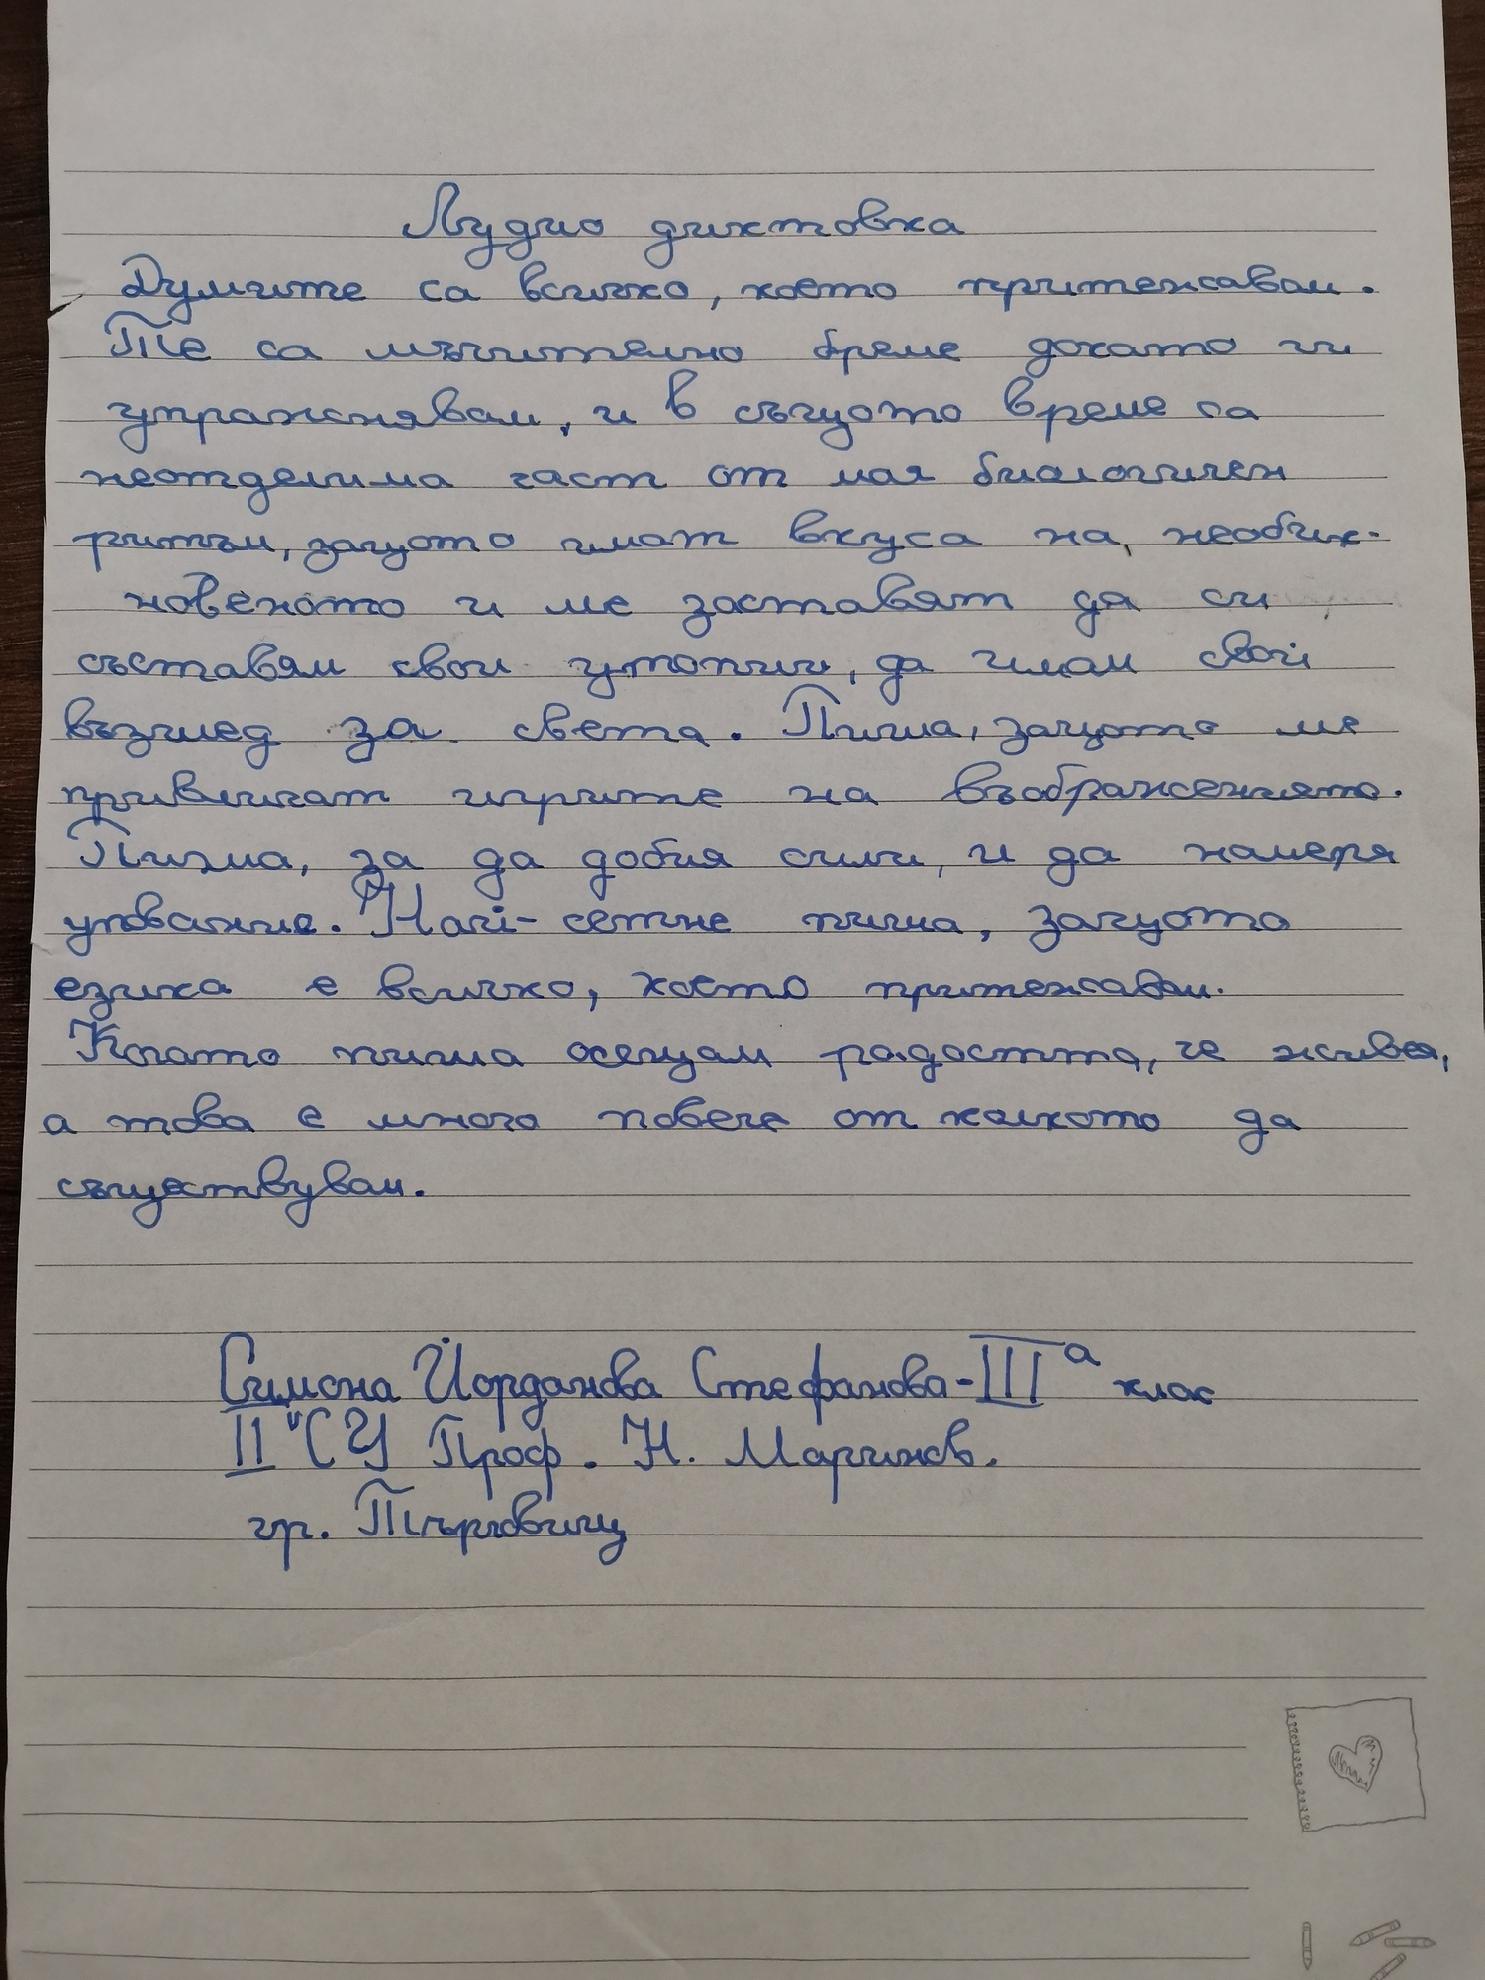 Аудио диктовка
Думите са всичко, което притежавам.
Те са мъчително бреме докато ги
упражнявам, и в същото време са
неотделима част от мая биологичен
ритъм, защото имат вкуса на, необик-
новеното и ме заставят да си
съставям свои утопии, да имам свой
възглед за света. Пиша, защото ме
привличат игрите на въображението.
Пиша, за да добия сили, и да намеря
упование. Най-сетне пиша, защото
езика е всичко, което притежавам.
Когато пиша осещам радостта, че живея,
а това е много повече от колкото да
съществувам.
Симона Йорданова Стефанова-III а клас
II "СУ Проф. Н. Маринов.
гр. Търговищ